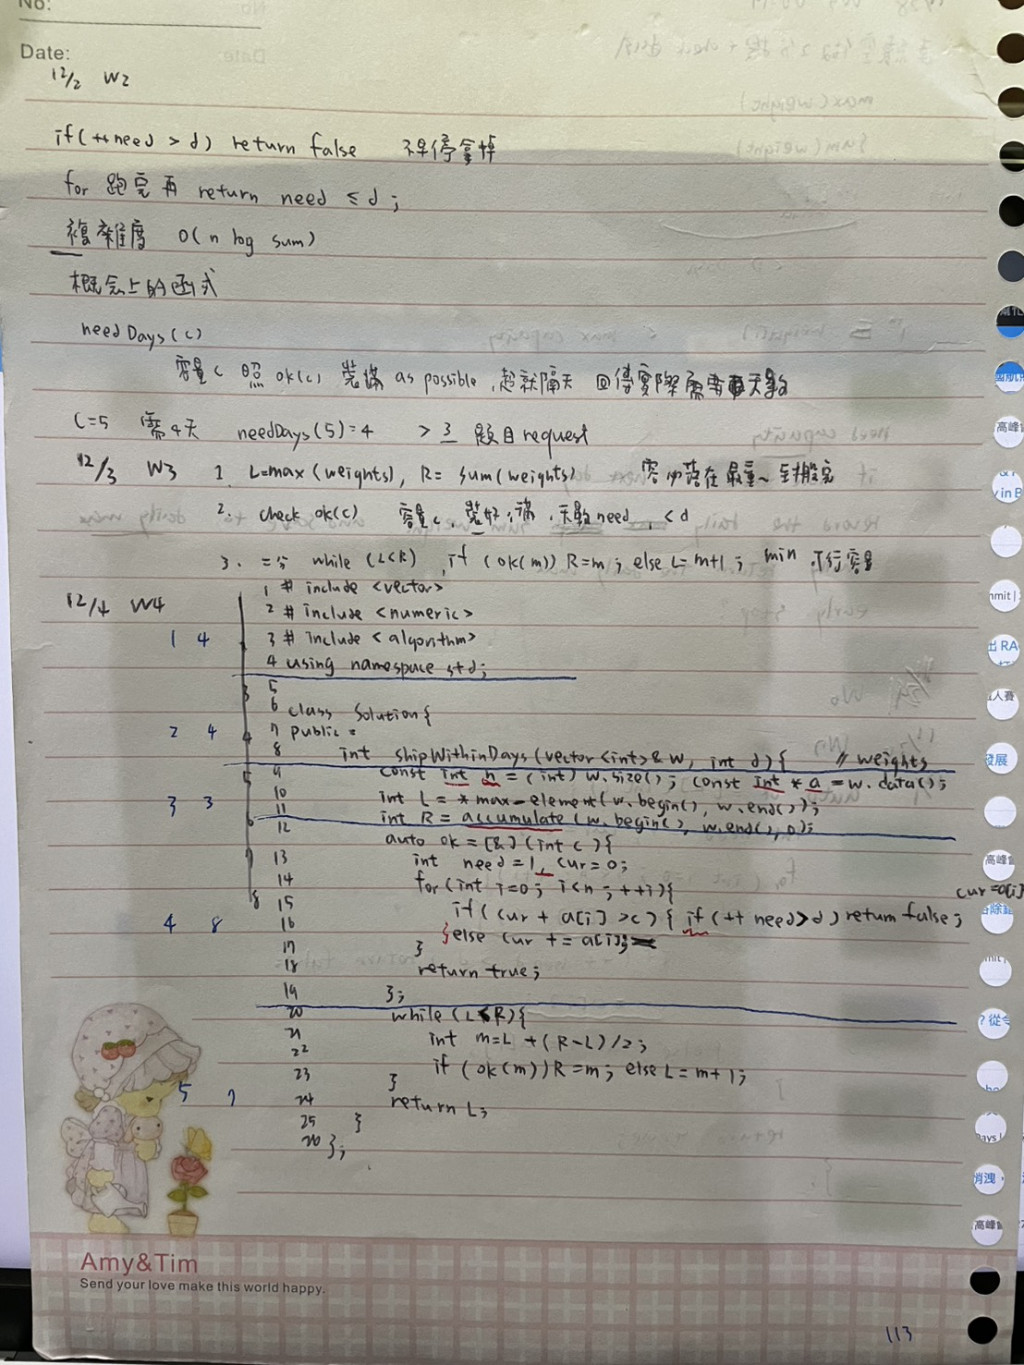 No:
Date:
12/2 W2
if(++need > d) return false 不早停拿掉
for 跑完再 return need ≤ d;
複雜度 O(n log sum)
概念上的函式
needDays(c)
容量c 照 ok(c) 裝滿 as possible, 超就隔天 回傳實際需要天數
C=5 需4天 needDays(5)=4 > 3 題目request
12/3 W3 1. L=max(weights), R= sum(weights) 容必落在最重~全搬完
2. check ok(c) 容量c, 裝好滿, 天數need, <d
3. 二分 while (L<R), if (ok(m)) R=m; else L=m+1; min 可行容量
12/4 W4
1 # include <vector>
2 # include <numeric>
1 4 3 # include <algorithm>
4 using namespace std;
3 5
6 class Solution{
2 4 4 7 public:
8 int shipWithinDays(vector<int>& w, int d){ // weights
5 9 const int n = (int) w.size(); const int * a = w.data();
3 3 10 int L = *max_element(w.begin(), w.end());
11 int R = accumulate(w.begin(), w.end(), 0);
6 12 auto ok = [&](int c){
7 13 int need=1, cur=0;
14 for(int i=0; i<n; ++i){
cur=a[i]
8 15 if(cur + a[i] >c) { if(++need>d) return false;
4 8 16 }else cur += a[i];
17 }
18 return true;
19 };
20 while (L<R){
21 int m=L +(R-L)/2;
22 if (ok(m)) R=m; else L=m+1;
5 7 23 }
24 return L;
25 }
26 };
Amy&Tim
Send your love make this world happy.
113
高峰會
發展
高峰會
高峰會